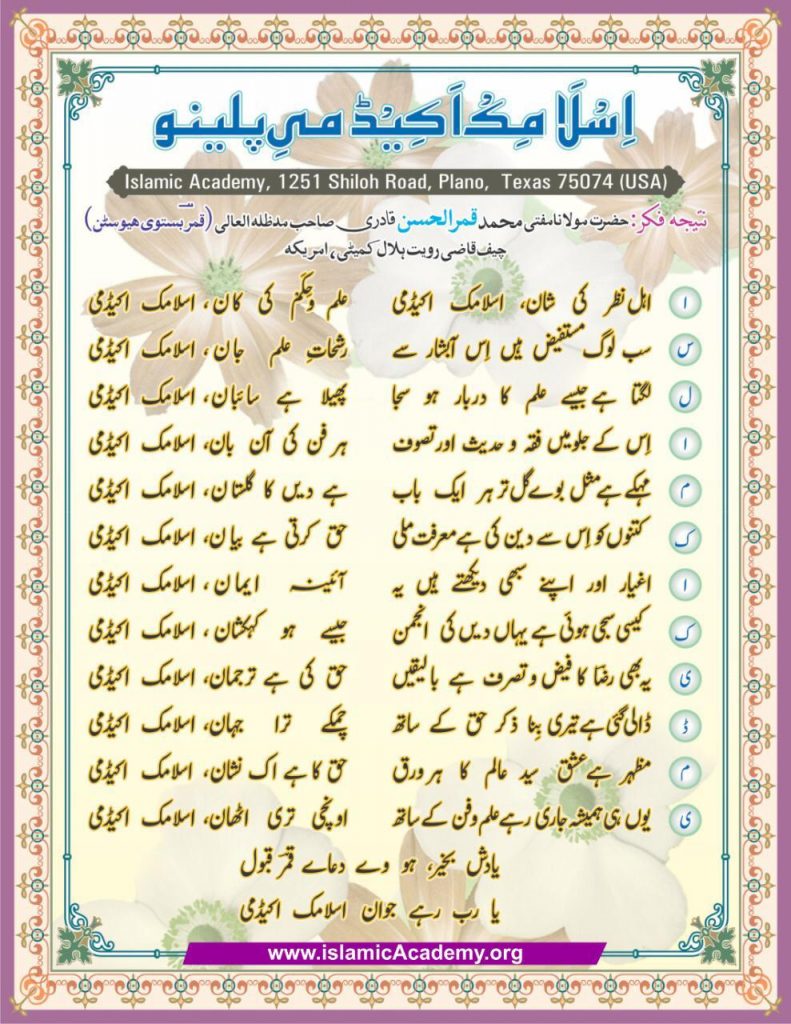 اِسْلَامِکْ اَکِیْڈمِی پلینو
Islamic Academy, 1251 Shiloh Road, Plano, Texas 75074 (USA)
نتیجہ فکر: حضرت مولانا مفتی محمد قمرالحسن قادری صاحب مدظلہ العالی (قمر بستوی ھیوسٹن)
چیف قاضی رویت ہلال کمیٹی، امریکہ
ا اہل نظر کی شان، اسلامک اکیڈمی علم و حِکَم کی کان، اسلامک اکیڈمی
س سب لوگ مستفیض ہیں اِس آبشار سے رشحاتِ علم جان، اسلامک اکیڈمی
ل لگتا ہے جیسے علم کا دربار ہو سجا پھیلا ہے سائبان، اسلامک اکیڈمی
ا اِس کے جلو میں فقہ و حدیث اور تصوف ہر فن کی آن بان، اسلامک اکیڈمی
م مہکے ہے مثل بوے گل تر ہر ایک باب ہے دیں کا گلستان، اسلامک اکیڈمی
ک کتنوں کو اِس سے دین کی ہے معرفت ملی حق کرتی ہے بیان، اسلامک اکیڈمی
ا اغیار اور اپنے سبھی دیکھتے ہیں یہ آئینہ ایمان، اسلامک اکیڈمی
ک کیسی سجی ہوئی ہے یہاں دیں کی انجمن جیسے ہو کہکشان، اسلامک اکیڈمی
ی یہ بھی رضؔا کا فیض و تصرف ہے بالیقیں حق کی ہے ترجمان، اسلامک اکیڈمی
ڈ ڈالی گئی ہے تیری بِنا ذکر حق کے ساتھ چمکے ترا جہان، اسلامک اکیڈمی
م مظہر ہے عشق سید عالم کا ہر ورق حق کا ہے اک نشان، اسلامک اکیڈمی
ی یوں ہی ہمیشہ جاری رہے علم و فن کے ساتھ اونچی تری اٹھان، اسلامک اکیڈمی
یادش بخیر، ہو وے دعاے قمؔر قبول
یا رب رہے جوان اسلامک اکیڈمی
www.islamicAcademy.org